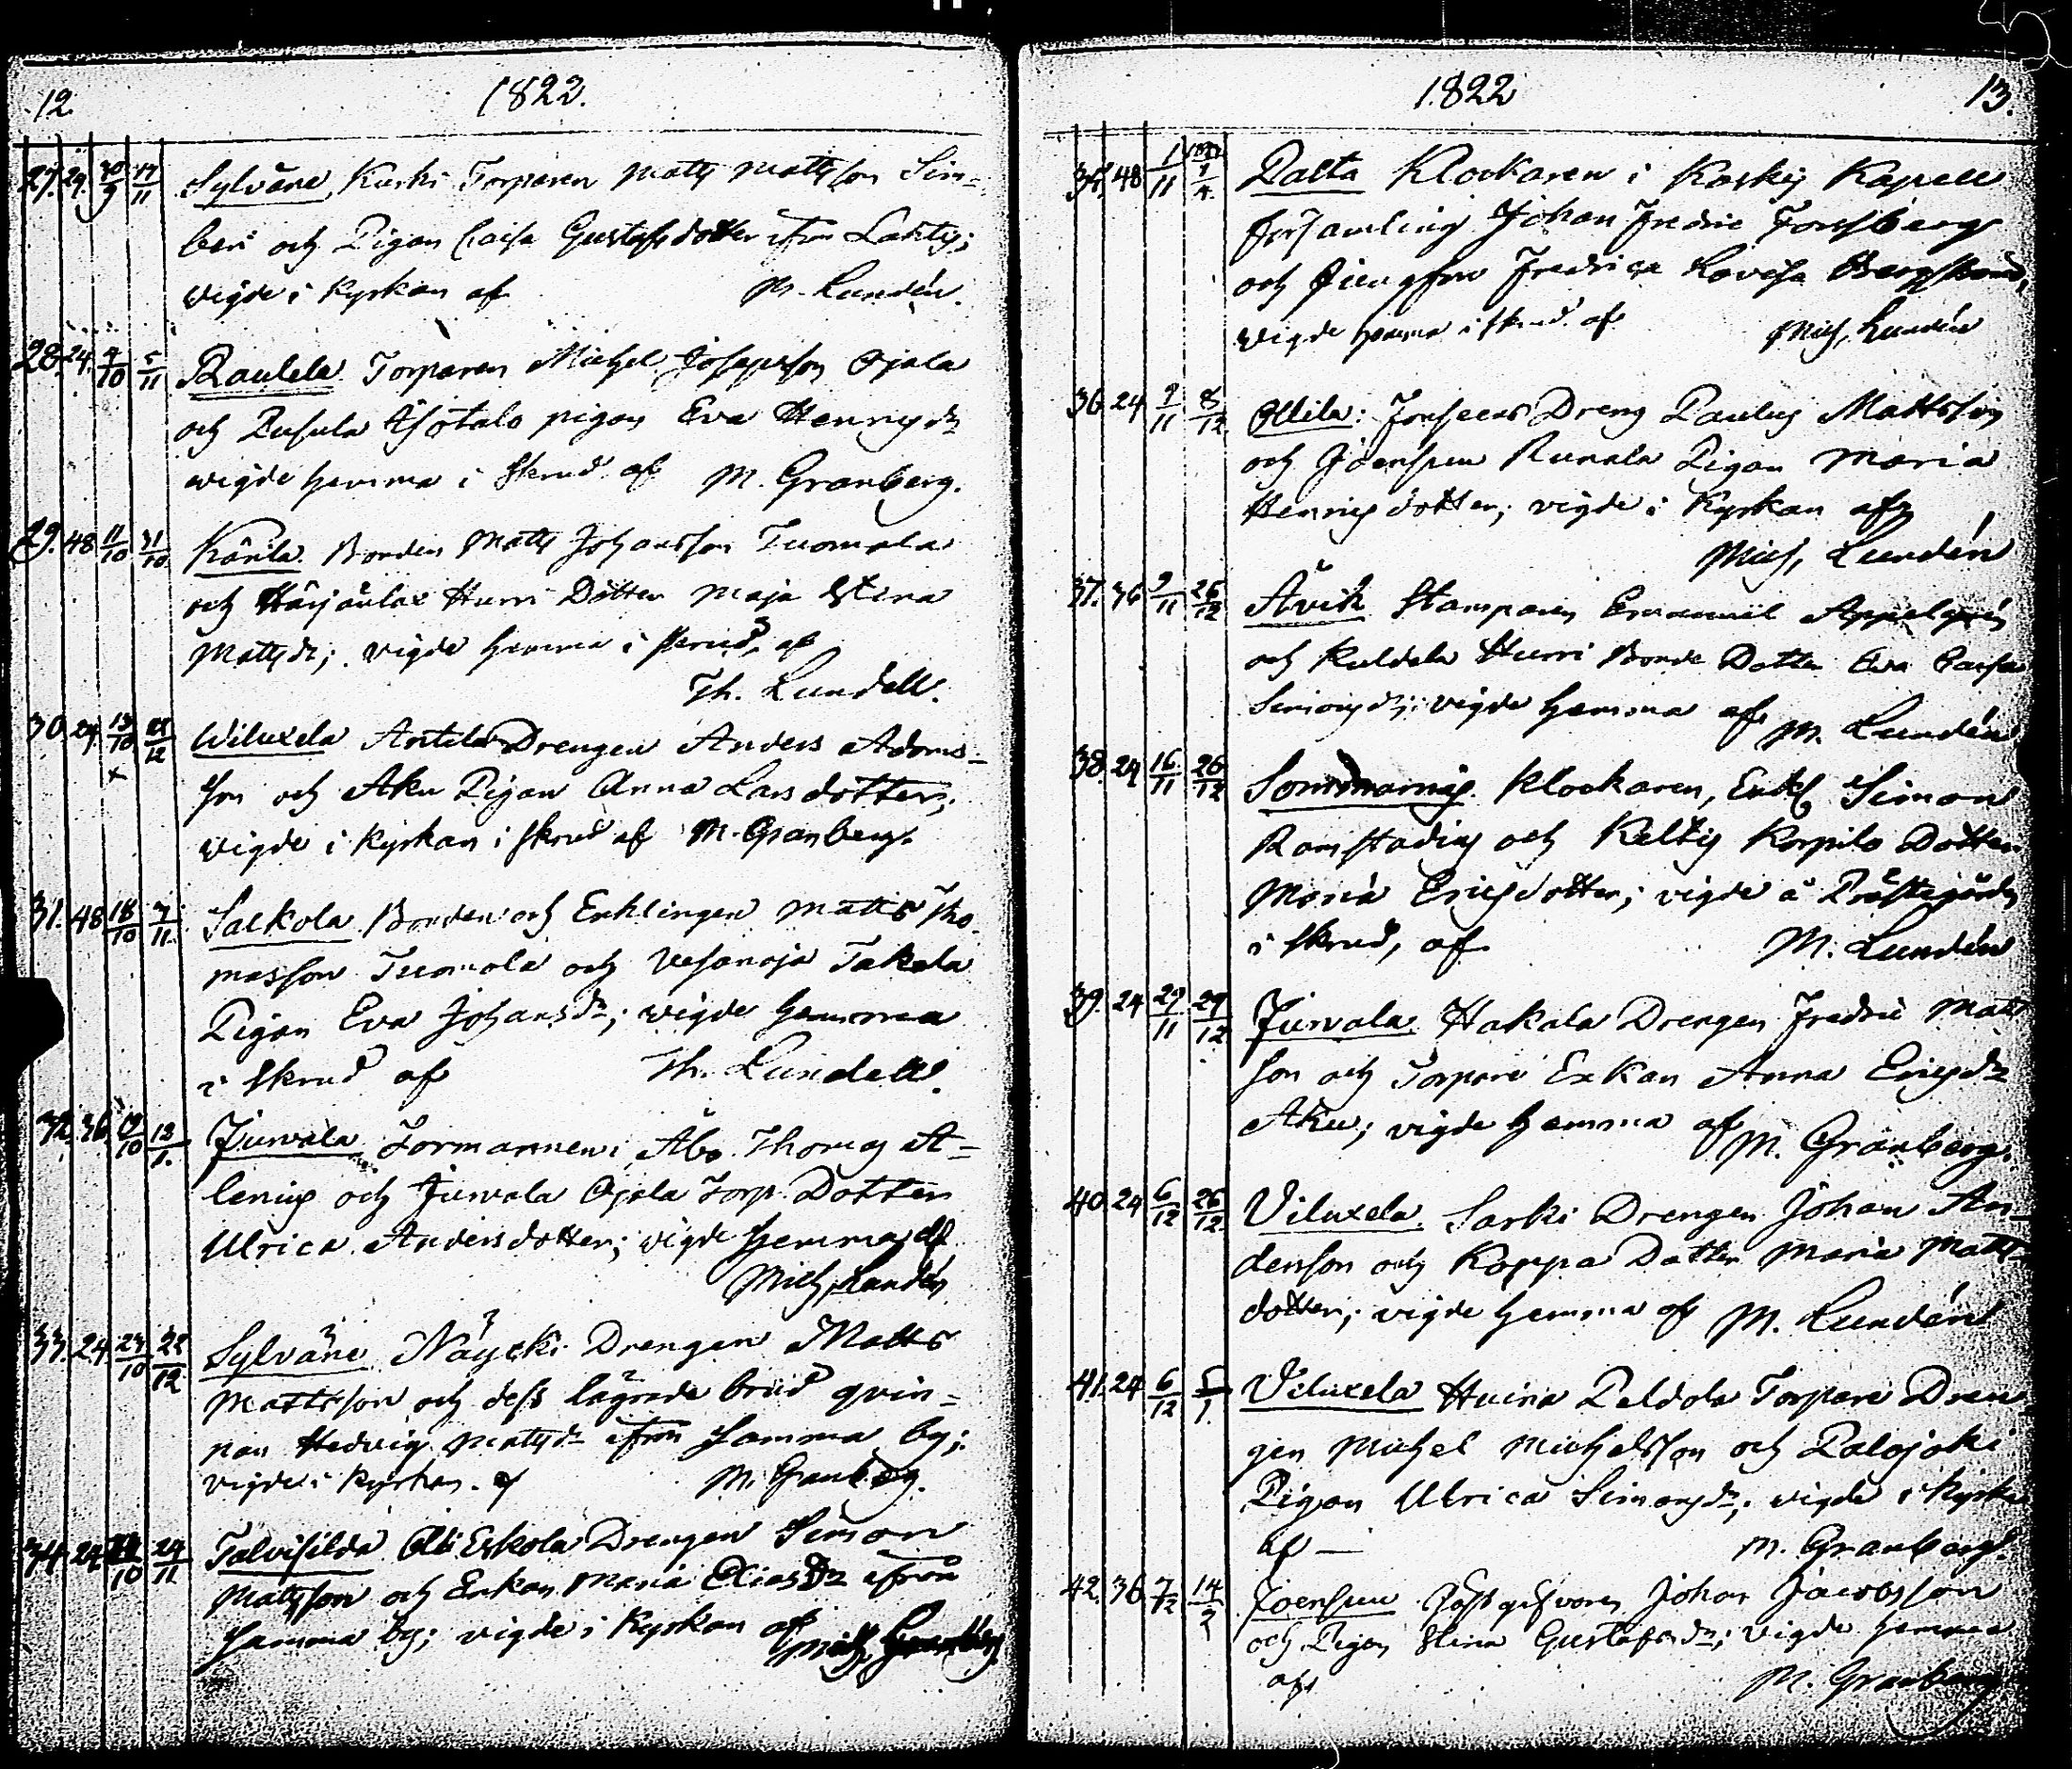 12. 1822.
27. 29. 30/9 17/11 Sylväne Kurki Torparen Matts Mattsson Sim=
beri och Pigan Caisa Gustafsdotter ifrån Lahtis;
vigde i Kyrkan af M. Lundén.
28. 24. 4/10 5/11 Raulela Torparen Michel Josepsson Ojala
och Pusula Isotalo pigan Eva Henricsdr
vigde hemma i skrud af M. Granberg.
29. 48 11/10 31/10 Känla Bonden Matts Johansson Tuomola
och Härjänlax Hurri Dotter Maja Stina
Matsdr; vigde hemma i skrud, af
Th. Lundell.
30. 24. 13/10 /12 Viluxela Anttila Drengen Anders Adams=
son och Aku Pigan Anna Larsdotter;
vigde i Kyrkan i skrud af M. Granberg.
31. 48 18/10 7/11. Salkola Bonden och Enklingen Matts Tho=
masson Tuomola och Vesanoja Takala
Pigan Eva Johansdr; vigde hemma
i skrud af Th. Lundell.
32. 36. 19/10 13/1. Juvala Formannen i Åbo Thomas A=
lenius och Juvala Ojala Torp. Dotter
Ulrica Andersdotter; vigde hemma af
Mich, Lundén
33. 24. 23/10 22/12 Sylväne Näycki Drengen Matts
Mattsson och dess lägrade brud qvin=
nan Hedvig Matsdr ifrån samma by;
vigde i Kyrkan af M. Granberg.
34. 24 /10 24/11 Talvisilda Alli Eskola Drengen Simon
Mattsson och Enkan Maria Eliasdr ifrån
samma by; vigde i Kyrkan af Mich, Granberg
1822 13.
35. 48 1/11 1/4. Palta Klockaren i Koskis Kapell
församling Johan Fredric Forssberg
och Jungfru Fredrica Lovisa Bergstrand,
vigde hemma i skrud af Mich, Lundén
36 24 9/11 8/12 Ollila: Dreng Paulus Mattsson
och Joensuu Runala Pigan Maria
Henricsdotter; vigde i Kyrkan af
Mich, Lundén
37. 36 9/11 26/12 Åvik Stamparen Emanuel Appelgrén
och Kuldela Hurri Bonde Dotter Eva Caisa
Simonsdr; vigde hemma af M. Lundén
38. 24 16/11 26/12 Sommarnäs. Klockaren, Enkl. Simon
Ramstadius och Keltis Korpilo Dotter
Maria Ericsdotter; vigde å Prästegården
i skrud, af M. Lundén
39. 24 29/11 29/12 Juvala Hakala Drengen Fredric Matts
son och Torpare Enkan Anna Ericsdr
Aku; vigde hemma af M. Granberg.
40. 24 6/12 26/12. Viluxela. Sarki Drengen Johan An=
dersson och Koppa Dotter Maria Matts=
dotter; vigde hemma af M. Lundén
41. 24 6/12 5/1. Viluxela Huina Peldola Torpare Dren
gen Michel Michelsson och Palojoki
Pigan Ulrica Simonsdr; vigde i Kyrkan
af — M. Granberg.
42. 36 7/12 14/2 Joensuu Gästgifvaren Johan Jacobsson
och Pigan Stina Gustafsdr; vigde hemma
af M. Granberg